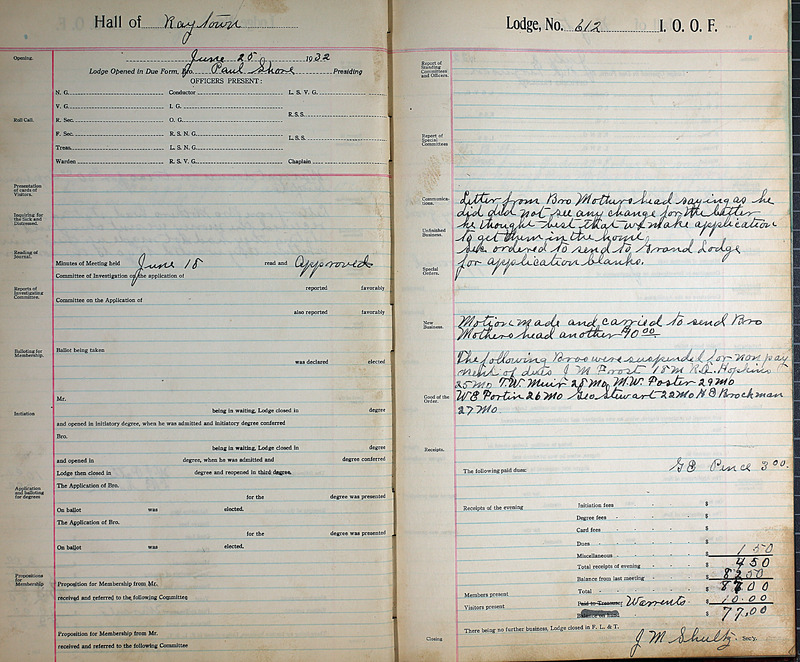 Hall of Raytown
Opening.
June 25 1932
Lodge Opened in Due Form, Bro. Paul Shore Presiding
OFFICERS PRESENT:
N. G. Conductor L. S. V. G.
V. G. I. G. R.S.S.
Roll Call.
R. Sec. O. G.
F. Sec. R. S. N. G. L.S.S.
Treas. L. S. N. G.
Warden R. S. V. G. Chaplain
Presentation of cards of Visitors.
Inquiring for the Sick and Distressed.
Reading of Journal.
Minutes of Meeting held June 18 read and Approved
Committee of Investigation on the application of
reported favorably
Reports of Investigating Committee.
Committee on the Application of
also reported favorably
Balloting for Membership.
Ballot being taken
was declared elected
Mr.
being in waiting, Lodge closed in degree
Initiation
and opened in initiatory degree, when he was admitted and initiatory degree conferred
Bro.
being in waiting, Lodge closed in degree
and opened in degree, when he was admitted and degree conferred
Lodge then closed in degree and reopened in third degree.
Application and balloting for degrees
The Application of Bro.
for the degree was presented
On ballot was elected.
The Application of Bro.
for the degree was presented
On ballot was elected.
Propositions for Membership
Proposition for Membership from Mr.
received and referred to the following Committee
Proposition for Membership from Mr.
received and referred to the following Committee
Lodge, No. 612 I. O. O. F.
Report of Standing Committees and Officers.
Report of Special Committees
Communications.
Letter from Bro Mothershead saying as he
did did not see any change for the better
he thought best that we make application
Unfinished Business.
to get them in the home,
Sec ordered to send to Grand Lodge
for application blanks.
Special Orders.
New Business.
Motion made and carried to send Bro
Mothershead another $10.00
The following Bros were suspended for non pay
ment of dues J M Frost 18 M R.A. Hopkins
25 Mo T.W. Muir 28 Mo, M.W. Foster 29 Mo
Good of the Order.
W E Fortin 26 Mo Geo Stewart 22 Mo N B Brockman
27 Mo
Receipts.
The following paid dues: G E Pence 3 00.
Receipts of the evening Initiation fees $
Degree fees $
Card fees $
Dues $
Miscellaneous $ 1 50
Total receipts of evening $ 4 50
Balance from last meeting $ 82 50
Members present Total $ 87 00
Visitors present Paid to Treasurer Warrents $ 10.00
Balance on hand $ 77,00
There being no further business, Lodge closed in F. L. & T.
Closing J M Shultz Sec'y.